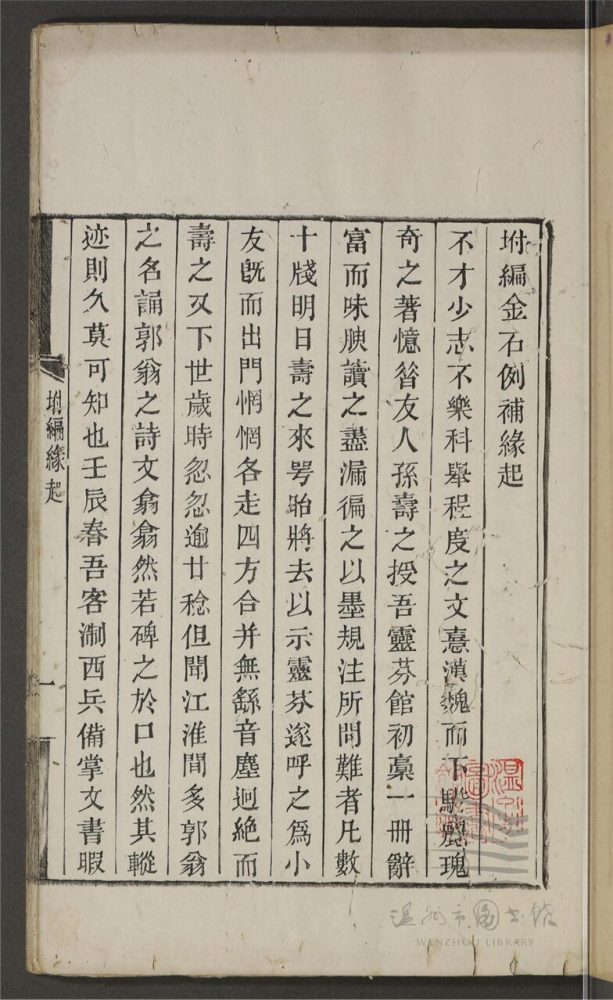 坿編金石例補緣起
不才少志不樂科舉程度之文憙漢魏而下駢麗瑰
奇之著憶昝友人孫壽之授吾靈芬館初稾一冊辭
富而味腴讀之盡漏徧之以墨規注所問難者凡數
十牋明日壽之來咢眙將去以示靈芬遂呼之爲小
友旣而出門惘惘各走四方合并無繇音塵迥絶而
壽之又下世歲時忽忽逾廿稔但聞江淮閒多郭翁
之名誦郭翁之詩文翕翕然若碑之於口也然其蹤
迹則久莫可知也壬辰春吾客淛西兵備掌文書暇
坿編緣起
一
温州市图书馆
WENZHOU LIBRARY